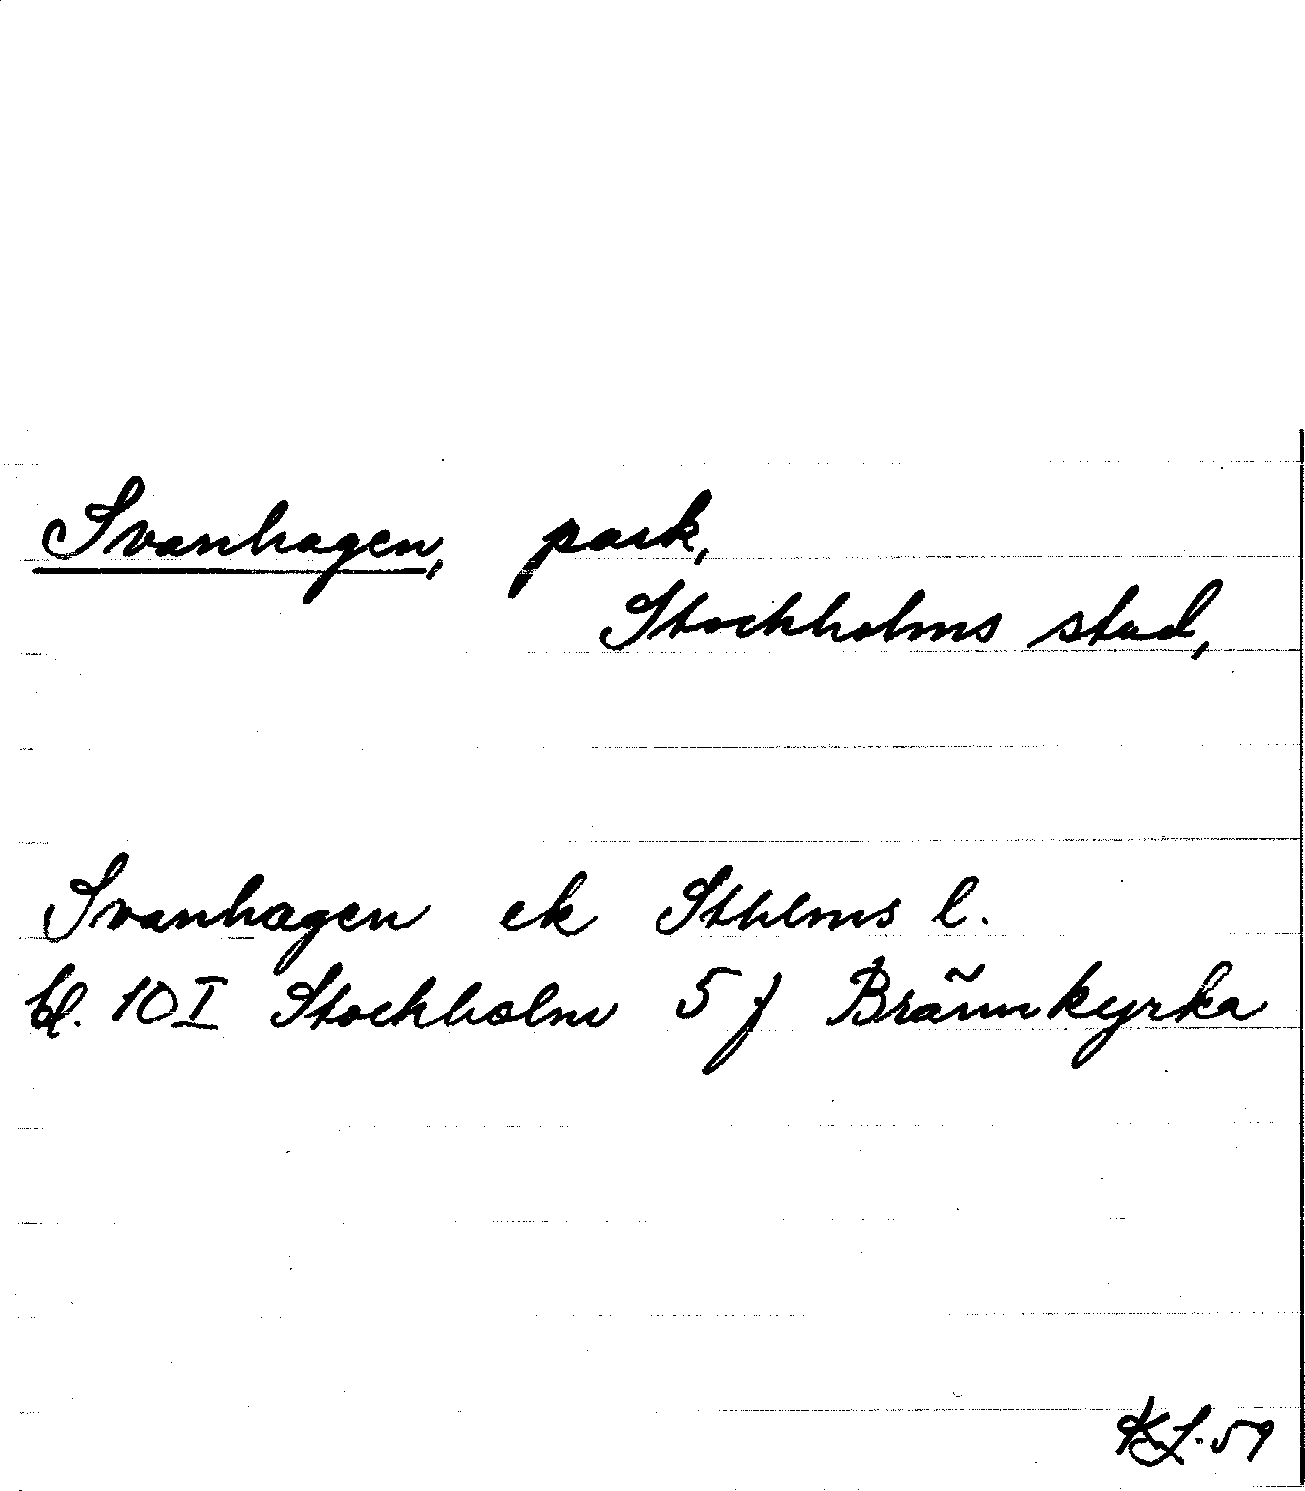 Svanhagen, park,
Stockholms stad,
Svanhagen ek Sthlms l.
bl. 10 I Stockholm 5 j Brännkyrka